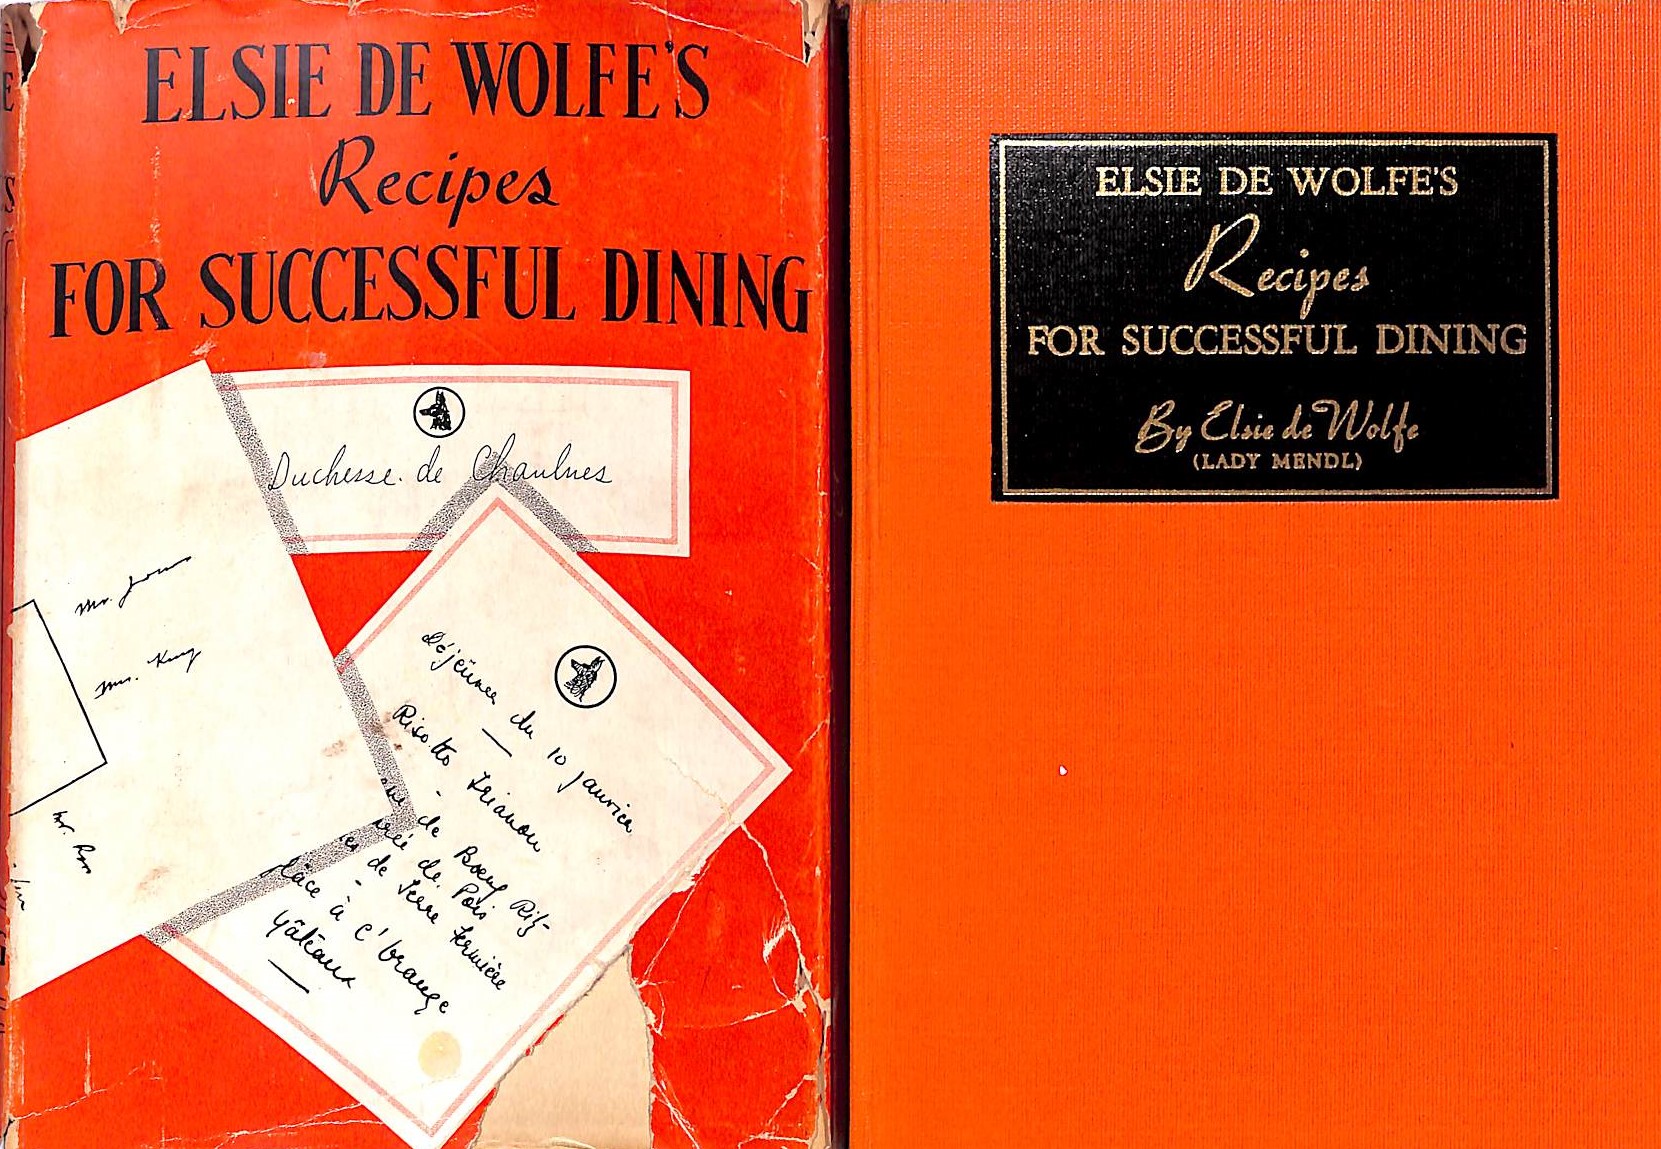 ELSIE DE WOLFE'S
Recipes
FOR SUCCESSFUL DINING
Duchesse de Chaulnes
Mr. Jones
Mrs. King
Mr. Ross
Déjeuner du 10 Janvier
Risotto Trianon
de Boeuf Ritz
de Pois
de Terre Fermière
Glace à l'Orange
Gâteaux
ELSIE DE WOLFE'S
Recipes
FOR SUCCESSFUL DINING
By Elsie de Wolfe
(LADY MENDL)